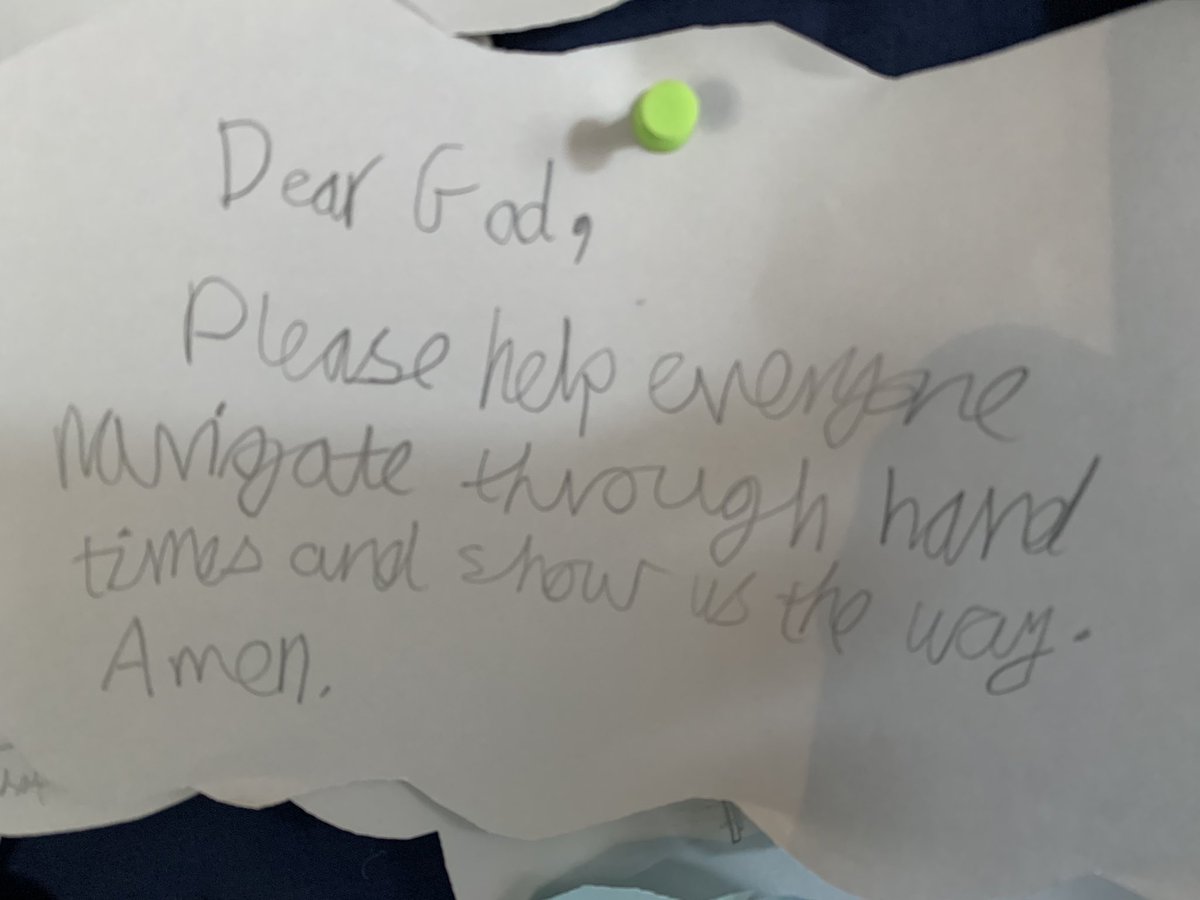 Dear God,
Please help everyone
navigate through hard
times and show us the way.
Amen.